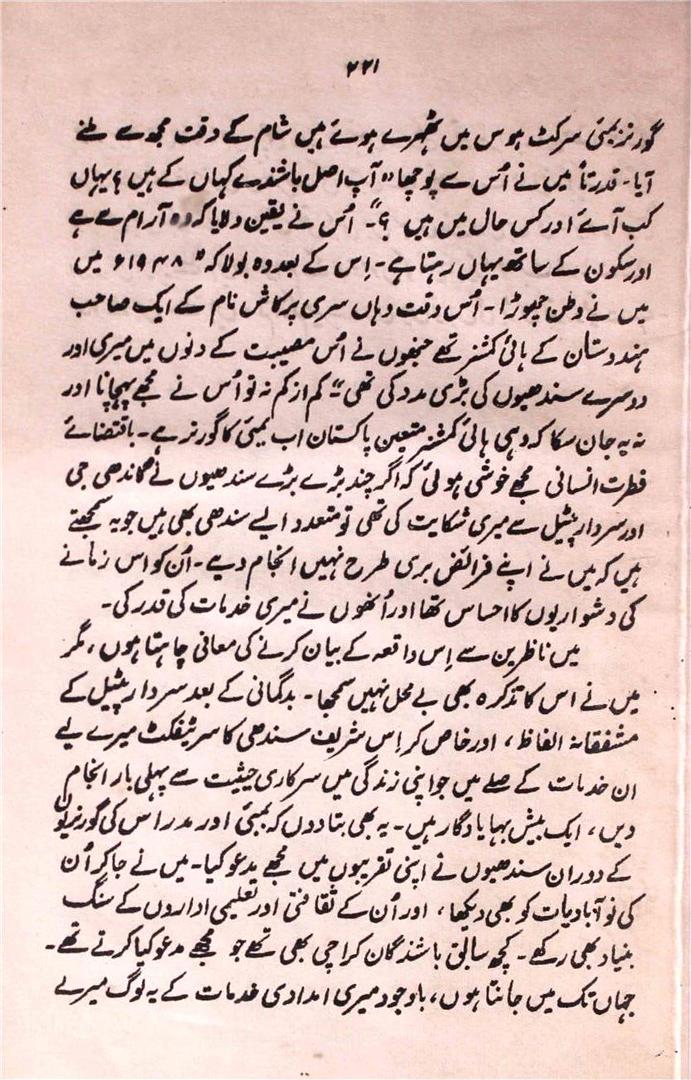 ۲۲۱
گورنر بمبئی سرکٹ ہوس میں ٹھہرے ہوئے ہیں شام کے وقت مجھ سے ملنے
آیا۔ قدرتاً میں نے اُس سے پوچھا "آپ اصل باشندے کہاں کے ہیں؟ یہاں
کب آئے اور کس حال میں ہیں؟"۔ اُس نے یقین دلایا کہ وہ آرام سے ہے
اور سکون کے ساتھ یہاں رہتا ہے۔ اِس کے بعد وہ بولا کہ "۱۹۴۸ء میں
میں نے وطن چھوڑا۔ اُس وقت وہاں سری پرکاش نام کے ایک صاحب
ہندوستان کے ہائی کمشنر تھے جنھوں نے اُس مصیبت کے دنوں میں میری اور
دوسرے سندھیوں کی بڑی مدد کی تھی"۔ کم از کم نہ تو اُس نے مجھے پہچانا اور
نہ یہ جان سکا کہ وہی ہائی کمشنر متعین پاکستان اب بمبئی کا گورنر ہے۔ باقتضائے
فطرت انسانی مجھے خوشی ہوئی کہ اگر چند بڑے بڑے سندھیوں نے گاندھی جی
اور سردار پٹیل سے میری شکایت کی تھی تو متعدد ایسے سندھی بھی ہیں جو یہ سمجھتے
ہیں کہ میں نے اپنے فرائض بری طرح نہیں انجام دیے۔ اُن کو اس زمانے
کی دشواریوں کا احساس تھا اور اُنھوں نے میری خدمات کی قدر کی۔
میں ناظرین سے اِس واقعہ کے بیان کرنے کی معافی چاہتا ہوں، مگر
میں نے اس کا تذکرہ بھی بے محل نہیں سمجھا۔ بدگمانی کے بعد سردار پٹیل کے
مشفقانہ الفاظ، اور خاص کر اِس شریف سندھی کا سرٹیفکٹ میرے لیے
ان خدمات کے صلے میں جو اپنی زندگی میں سرکاری حیثیت سے پہلی بار انجام
دیں، ایک بیش بہا یادگار ہیں۔ یہ بھی بتا دوں کہ بمبئی اور مدراس کی گورنریوں
کے دوران سندھیوں نے اپنی تقریبوں میں مجھے مدعو کیا۔ میں نے جا کر اُن
کی نو آبادیات کو بھی دیکھا، اور اُن کے ثقافتی اور تعلیمی اداروں کے سنگ
بنیاد بھی رکھے۔ کچھ سابق باشندگان کراچی بھی تھے جو مجھے مدعو کیا کرتے تھے۔
جہاں تک میں جانتا ہوں، باوجود میری امدادی خدمات کے یہ لوگ میرے